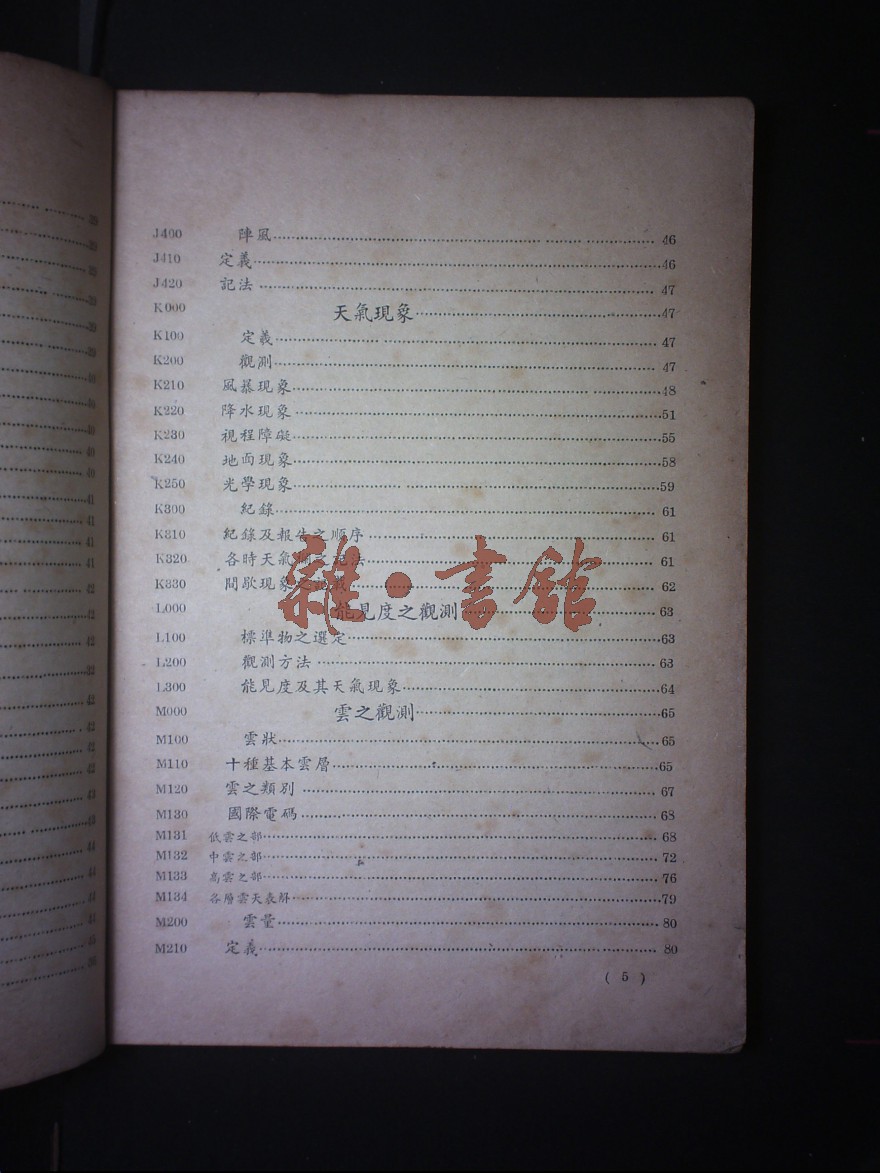 J400 陣風 46
J410 定義 46
J420 記法 47
K000 天氣現象 47
K100 定義 47
K200 觀測 47
K210 風暴現象 48
K220 降水現象 51
K230 視程障礙 55
K240 地面現象 58
K250 光學現象 59
K300 紀錄 61
K310 紀錄及報告之順序 61
K320 各時天氣 法 61
K330 間歇現象 62
雜·書館
L000 能見度之觀測 63
L100 標準物之選定 63
L200 觀測方法 63
L300 能見度及其天氣現象 64
M000 雲之觀測 65
M100 雲狀 65
M110 十種基本雲層 65
M120 雲之類別 67
M130 國際電碼 68
M131 低雲之部 68
M132 中雲之部 72
M133 高雲之部 76
M134 各層雲天表解 79
M200 雲量 80
M210 定義 80
( 5 )